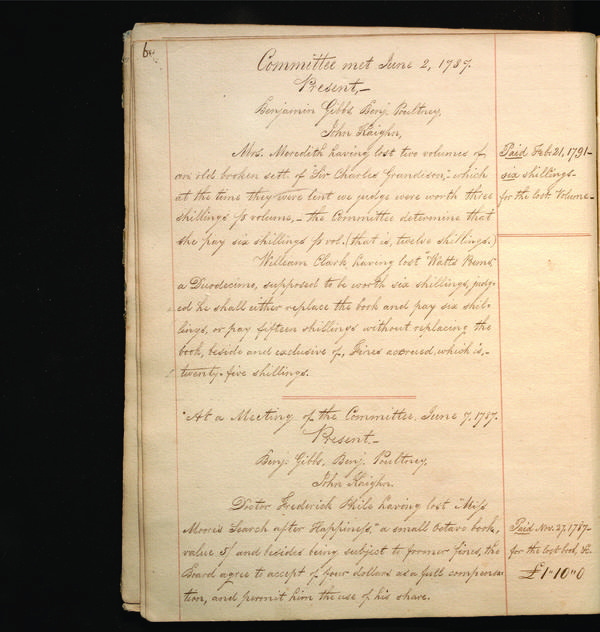 6
Committee met June 2, 1787.
Present,-
Benjamin Gibbs, Benj. Poultney,
John Kaighn,
Mrs. Meredith having lost two volumes of
an old broken sett of "Sir Charles Grandison," which
at the time they were lent we judge were worth three
shillings pr volume, - the Committee determine that
she pay six shillings pr vol. (that is, twelve shillings.)
Paid Feb. 21, 1791-
six shillings-
for the lost Volume-
William Clark having lost "Watts Poems,"
a Duodecimo, supposed to be worth six shillings, judg-
ed he shall either replace the book and pay six shil-
lings, or pay fifteen shillings without replacing the
book, beside and exclusive of, Fines accrued, which is, -
twenty-five shillings.
"At a Meeting of the Committee, June 7, 1787.
Present.-
Benj. Gibbs, Benj. Poultney,
John Kaighn.
Doctor Frederick Phile having lost "Miss
Moore's Search after Happiness," a small Octavo book,
value 5/ and besides being subject to former fines, the
Board agree to accept of four dollars as a full compensa-
tion, and permit him the use of his share.
Paid Nov. 27, 1787-
for the lost book, &c.
£1"10"0